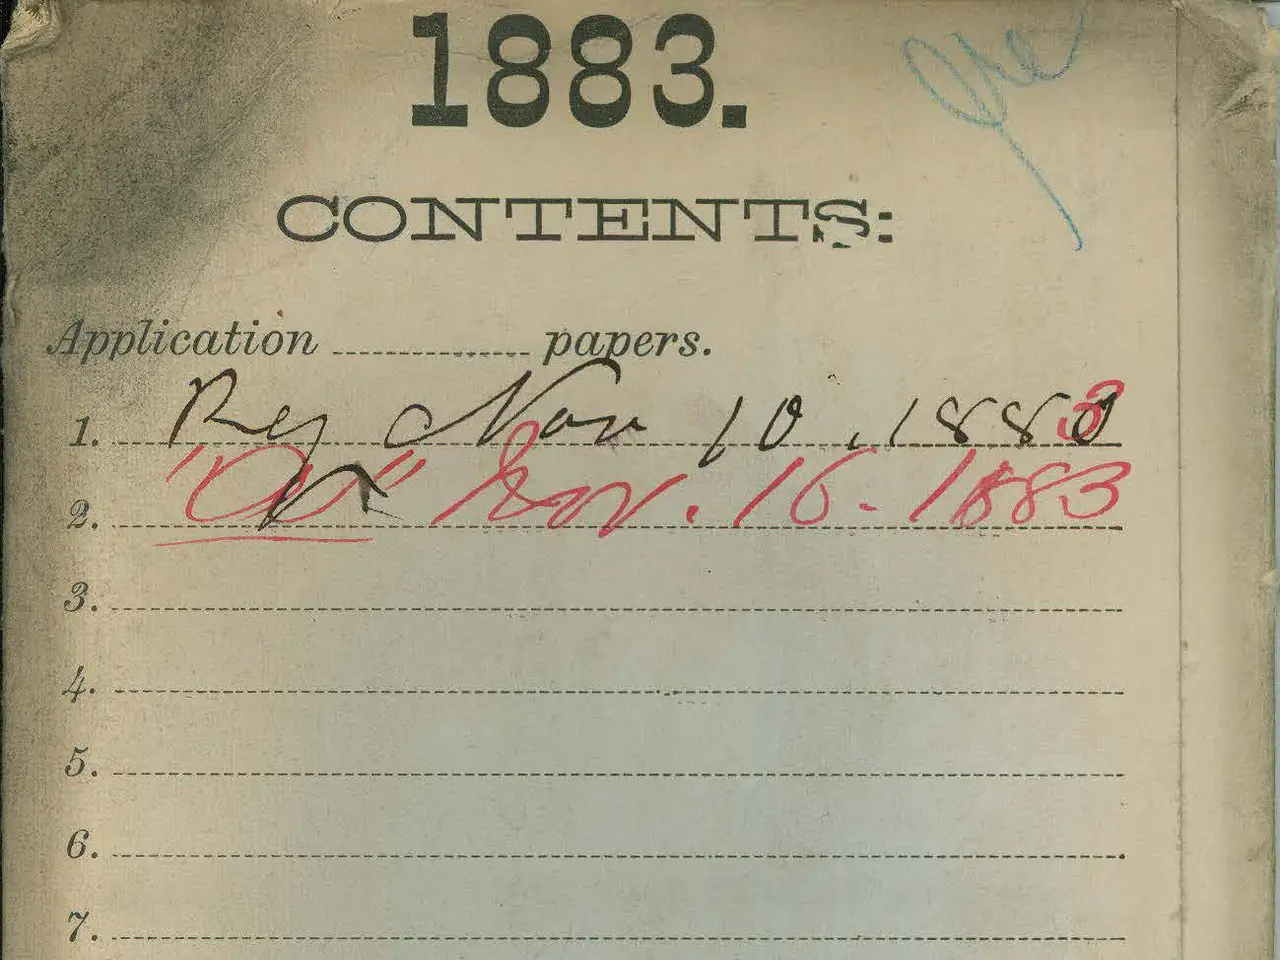 1883.
CONTENTS:
Application ............ papers.
1. Rej Nov 10, 1883
2. " " Nov. 16. 1883
3.
4.
5.
6.
7.